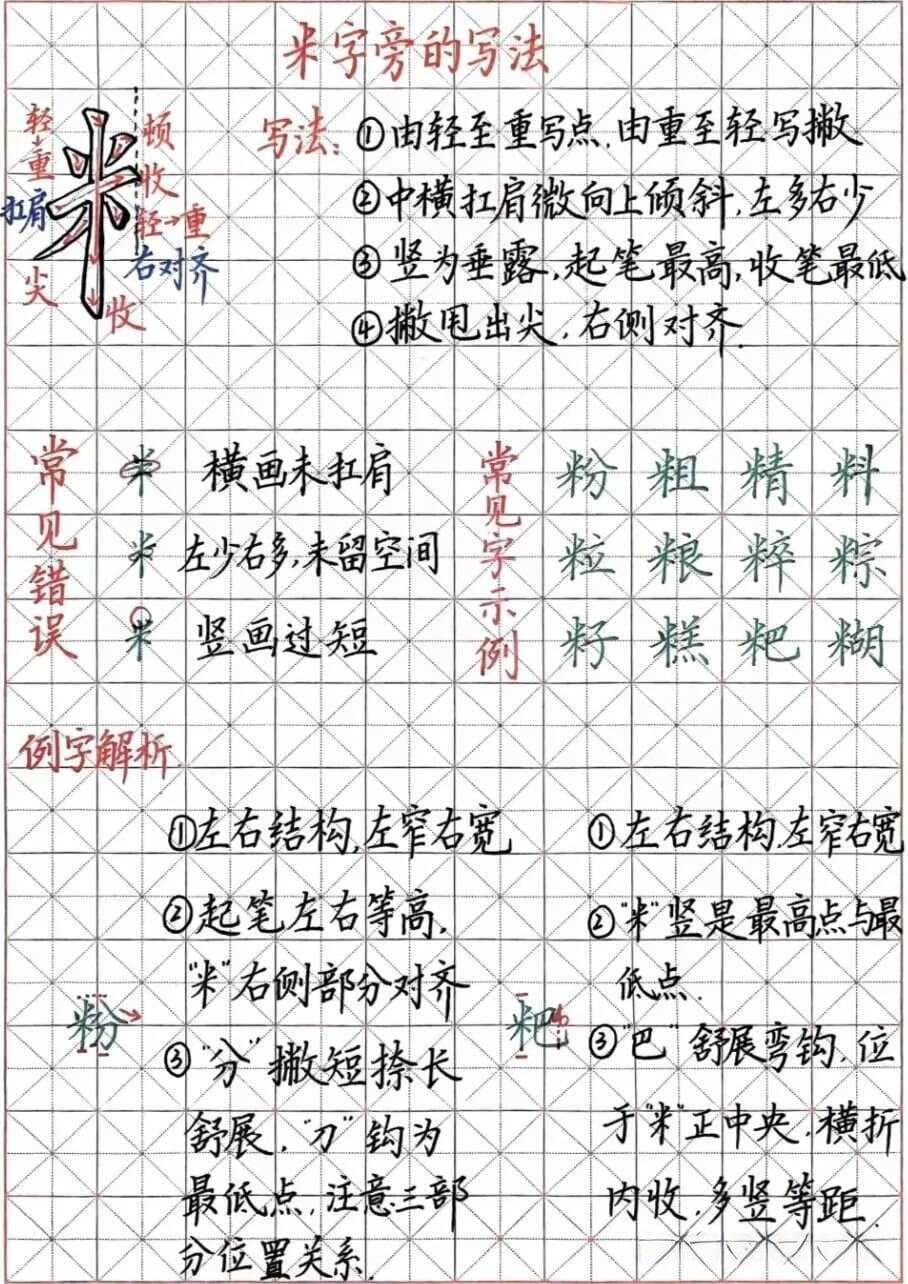 米字旁的写法
轻→重
扛肩
尖
顿
收
轻→重
右对齐
收
写法:①由轻至重写点.由重至轻写撇.
②中横扛肩微向上倾斜.左多右少
③竖为垂露,起笔最高,收笔最低
④撇甩出尖,右侧对齐.
常见错误
米 横画未扛肩
米 左少右多,未留空间
米 竖画过短
常见字示例
粉 粗 精 料
粒 粮 粹 粽
籽 糕 粑 糊
例字解析.
粉
①左右结构,左窄右宽
②起笔左右等高,
"米"右侧部分对齐
③"分"撇短捺长
舒展,"刀"钩为
最低点,注意三部
分位置关系.
粑
①左右结构.左窄右宽
②"米"竖是最高点与最
低点.
③"巴"舒展弯钩,位
于"米"正中央,横折
内收,多竖等距.